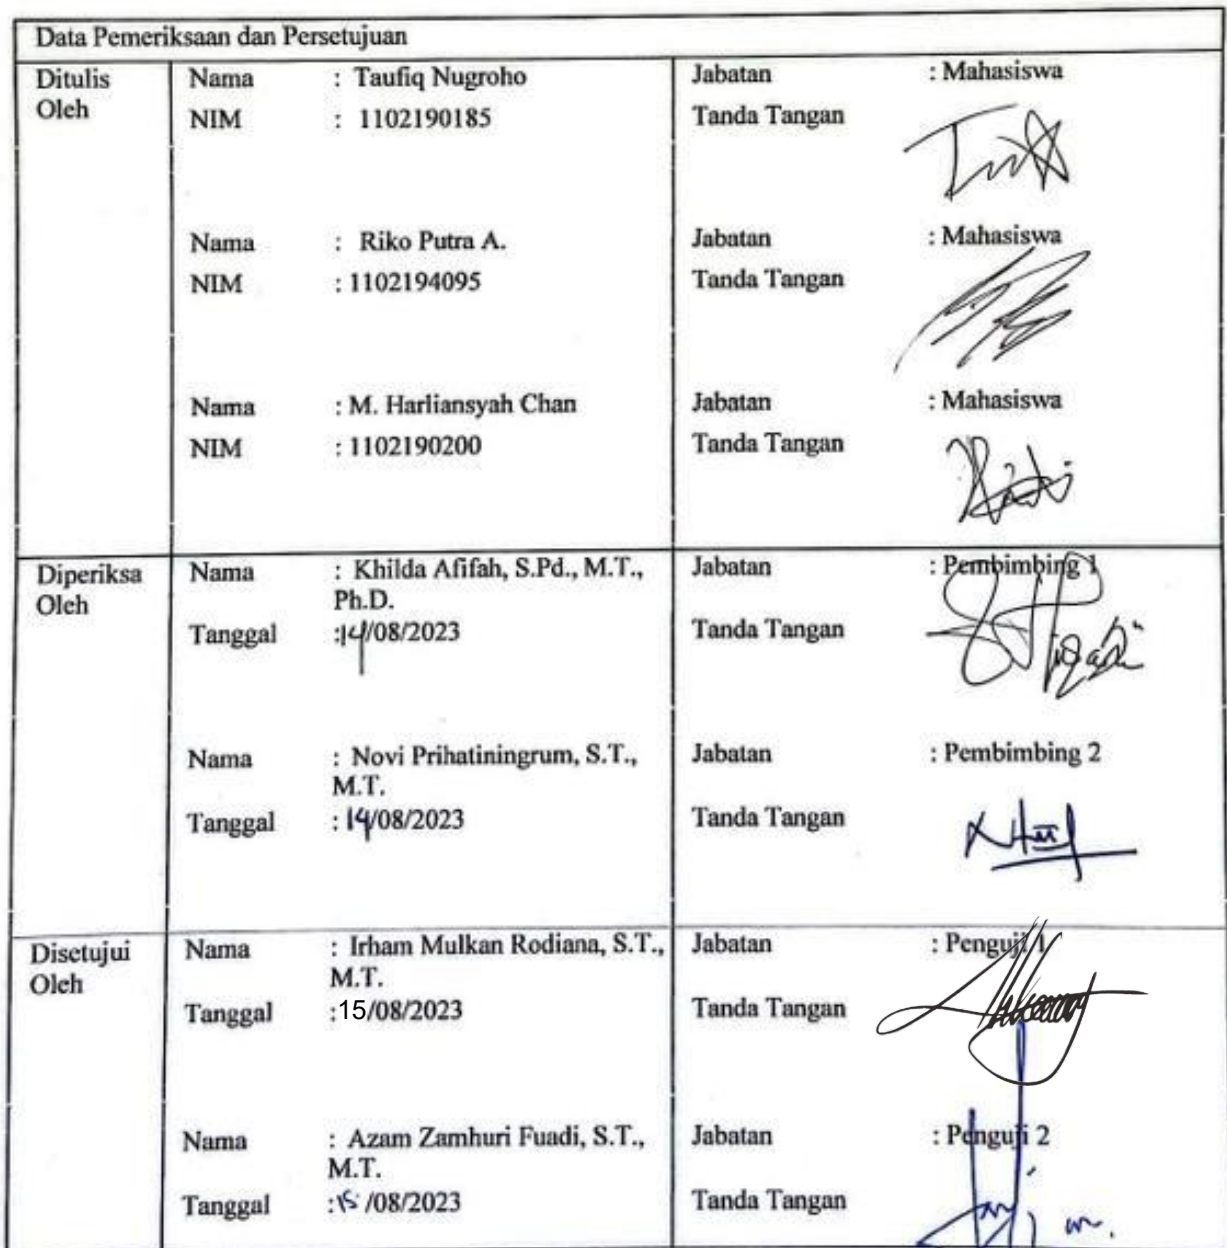 Data Pemeriksaan dan Persetujuan
Ditulis Oleh
Nama : Taufiq Nugroho
Jabatan : Mahasiswa
NIM : 1102190185
Tanda Tangan
Nama : Riko Putra A.
Jabatan : Mahasiswa
NIM : 1102194095
Tanda Tangan
Nama : M. Harliansyah Chan
Jabatan : Mahasiswa
NIM : 1102190200
Tanda Tangan
Diperiksa Oleh
Nama : Khilda Afifah, S.Pd., M.T.,
Ph.D.
Jabatan : Pembimbing 1
Tanggal :14/08/2023
Tanda Tangan
Nama : Novi Prihatiningrum, S.T.,
M.T.
Jabatan : Pembimbing 2
Tanggal : 14/08/2023
Tanda Tangan
Disetujui Oleh
Nama : Irham Mulkan Rodiana, S.T.,
M.T.
Jabatan : Penguji 1
Tanggal :15/08/2023
Tanda Tangan
Nama : Azam Zamhuri Fuadi, S.T.,
M.T.
Jabatan : Penguji 2
Tanggal :15/08/2023
Tanda Tangan